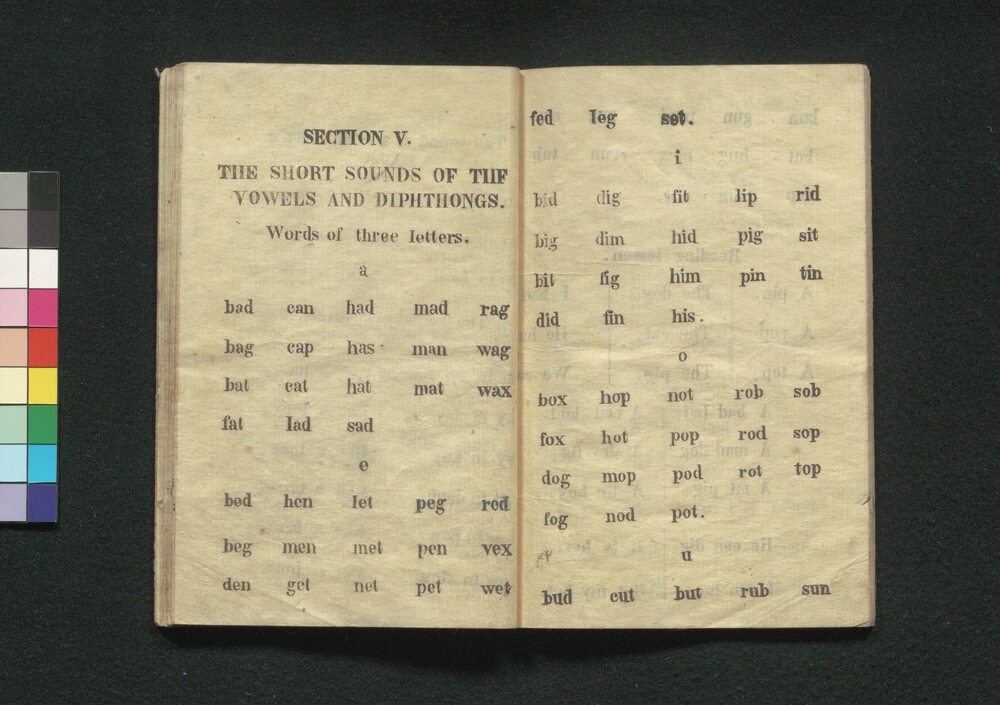 SECTION V.
THE SHORT SOUNDS OF THE
VOWELS AND DIPHTHONGS.
Words of three letters.
a
bad can had mad rag
bag cap has man wag
bat cat hat mat wax
fat lad sad
e
bed hen let peg red
beg men met pen vex
den get net pet wet
fed leg set.
i
bid dig fit lip rid
big dim hid pig sit
bit fig him pin tin
did fin his.
o
box hop not rob sob
fox hot pop rod sop
dog mop pod rot top
fog nod pot.
u
bud cut but rub sun